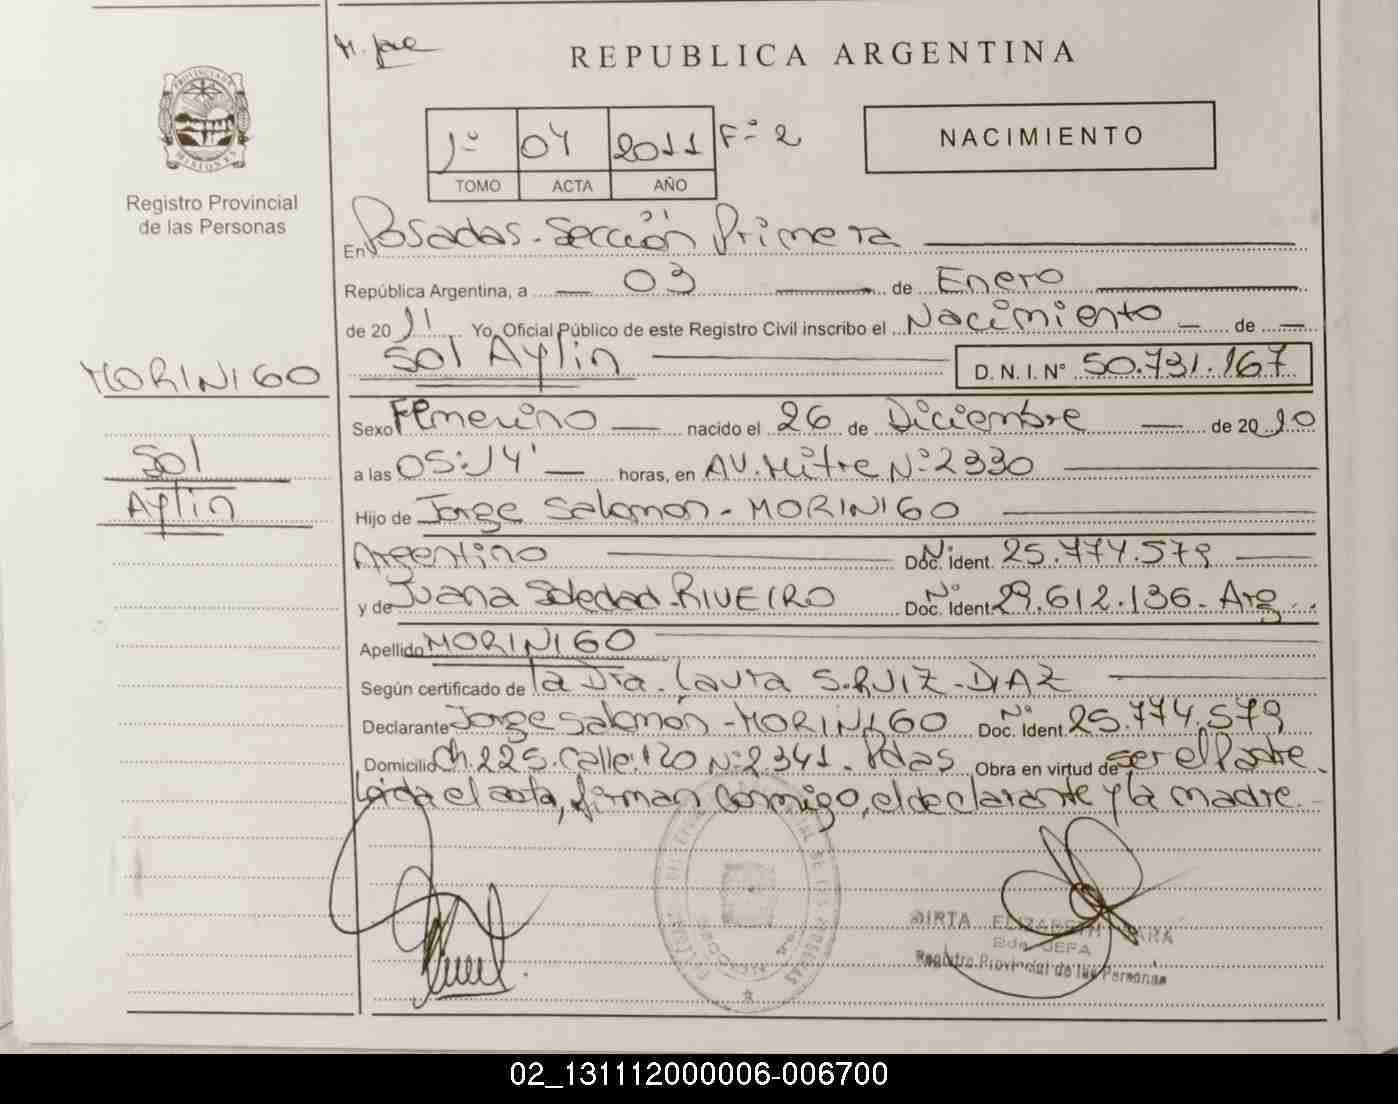 REPUBLICA ARGENTINA
PROVINCIA DE
MISIONES
Registro Provincial
de las Personas
1º 04 2011 Fº 2
TOMO ACTA AÑO
NACIMIENTO
En Posadas - Sección Primera
República Argentina, a 03 de Enero
de 2011 Yo, Oficial Público de este Registro Civil inscribo el Nacimiento de
Sol Aylin D. N. I. N° 50.731.167
MORINIGO
Sexo Femenino nacido el 26 de Diciembre de 2010
Sol
a las 05:14' horas, en AV. Mitre Nº 2330
Aylin
Hijo de Jorge Salomon - MORINIGO
Argentino Nº Doc. Ident. 25.774.579
y de Juana Soledad - RIVEIRO Nº Doc. Ident. 29.612.136 - Arg.
Apellido MORINIGO
Según certificado de la Dra. Laura S. RUIZ - DIAZ
Declarante Jorge Salomon - MORINIGO Nº Doc. Ident. 25.774.579
Domicilio Ch. 225. Calle: 120 Nº 2.341 - Pdas Obra en virtud de ser el Padre.
Leida el acta, firman conmigo, el declarante y la madre.
MIRTA ELIZABETH
2da. JEFA
Registro Provincial de las Personas
02_131112000006-006700